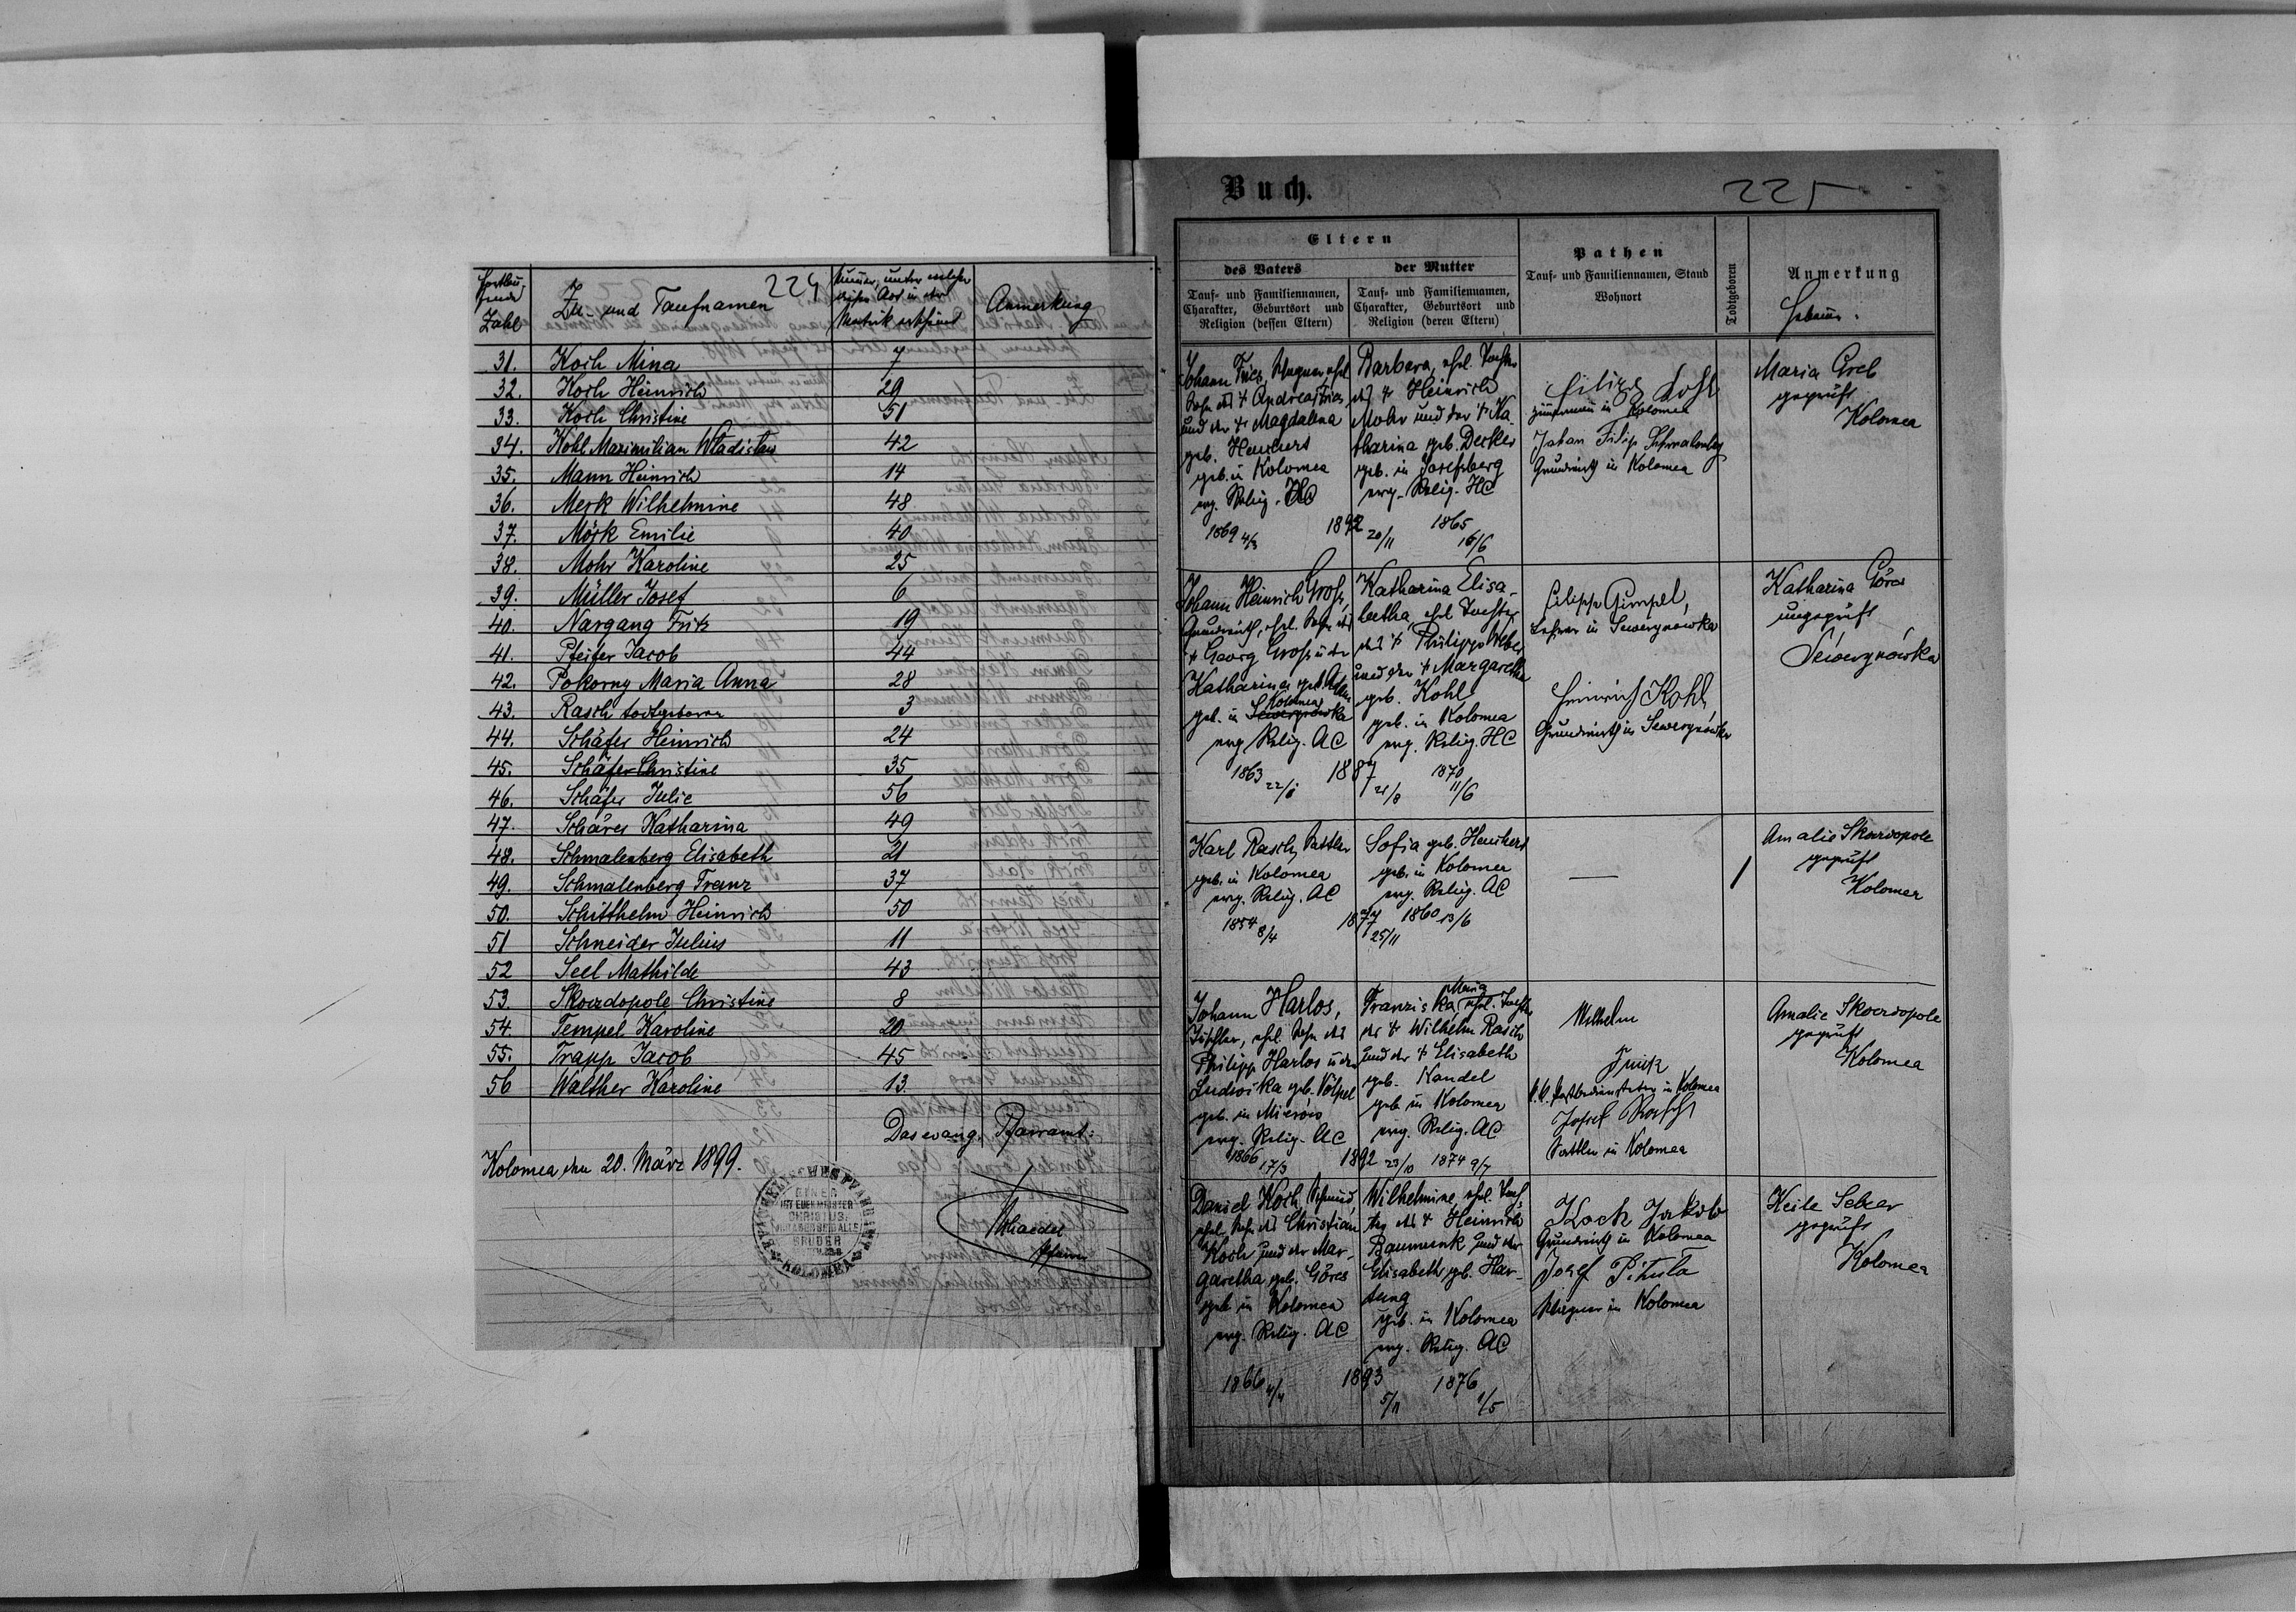 224
Fortlau-
fende
Zahl
Zu- und Taufnamen
Nummer, unter welcher
dieser Act in der
Matrik erscheint
Anmerkung
31. Koch Mina 7
32. Koch Heinrich 29
33. Koch Christine 51
34. Kohl Maximilian Władisław 42
35. Mann Heinrich 14
36. Merk Wilhelmine 48
37. Mörk Emilie 40
38. Mohr Karoline 25
39. Müller Josef 6
40. Nargang Fritz 19
41. Pfeifer Jacob 44
42. Pokorny Maria Anna 28
43. Rasch todtgeboren 3
44. Schäfer Heinrich 24
45. Schäfer Christine 35
46. Schäfer Julie 56
47. Schärer Katharina 49
48. Schmalenberg Elisabeth 21
49. Schmalenberg Franz 37
50. Schitthelm Heinrich 50
51 Schneider Julius 11
52 Seel Mathilde 43
53. Skoerdopole Christine 8
54. Tempel Karoline 20
55. Trapp Jacob 45
56 Walther Karoline 13
Das evang. Pfarramt:
Kolomea den 20. März 1899.
EVANGELISCHES PFARRAMT
EINER
IST EUER MEISTER
CHRISTUS:
IHR ABER SEID ALLE
BRÜDER
KOLOMEA
Pfarrer
Buch. 225
Eltern
des Vaters
der Mutter
Tauf- und Familiennamen,
Charakter, Geburtsort und
Religion (dessen Eltern)
Tauf- und Familiennamen,
Charakter, Geburtsort und
Religion (deren Eltern)
Pathen
Tauf- und Familiennamen, Stand
Wohnort
Todtgeboren
Anmerkung
Hebamme.
Johann Fries, Wagner, ehel.
Sohn des † Andreas Fries
und der † Magdalena
geb. Heuchert
geb. in Kolomea
evg. Relig. HC
1869 4/3 1892 20/11
Barbara, ehel. Tochter
des † Heinrich
Mohr und der † Ka-
tharina geb. Decker
geb. in Josefsberg
evg. Relig. HC
1865
16/6
Filipp Kohl
Zimmermann in Kolomea
Johan Filip Schmalenberg
Grundwirth in Kolomea
Maria Greb
geprüft
Kolomea
Johann Heinrich Groß,
Grundwirth, ehel. Sohn des
† Georg Groß u. der
Katharina geb.
Kolomea
geb. in Sewerynówka
evg. Relig. AC
1863 22/8 1887 21/8
Katharina Elisa-
betha, ehel. Tochter
des † Philipp Weber
und der † Margaretha
geb. Kohl
geb. in Kolomea
evg. Relig. HC
1870
11/6
Filipp Gimpel,
Lehrer in Sewerynowka
Heinrich Kohl,
Grundwirth in Sewerynówka
Katharina Göres
ungeprüft
Sewerynówka
Karl Rasch, Sattler
geb. in Kolomea
evg. Relig. AC
1854 8/4 1877 25/11
Sofia geb. Heuchert
geb. in Kolomea
evg. Relig. AC
1860 13/6
—
1
Amalie Skoerdopole
geprüft
Kolomea
Johann Harlos,
Tischler, ehel. Sohn des
Philipp Harlos u. der
Ludwika geb. Völpel
geb. in Mierów
evg. Relig. AC
1866 17/3 1892 23/10
Maria
Franziska, ehel. Tochter
des † Wilhelm Rasch
und der † Elisabeth
geb. Kandel
geb. in Kolomea
evg. Relig. AC
1874 9/7
Wilhelm
Junk
k. k. Postbediensteter in Kolomea
Josef Rasch
Sattler in Kolomea
Amalie Skoerdopole
geprüft
Kolomea
Daniel Koch, Schmied,
ehel. Sohn des Christian
Koch und der Mar-
garetha geb. Göres
geb. in Kolomea
evg. Relig. AC
1866 4/4 1893 5/11
Wilhelmine, ehel. Toch-
ter des † Heinrich
Baumunk und der
Elisabeth geb. Har-
tung
geb. in Kolomea
evg. Relig. AC
1876
1/5
Koch Jakob
Grundwirth in Kolomea
Josef Pituła
Wagner in Kolomea
Keile Selzer
geprüft
Kolomea